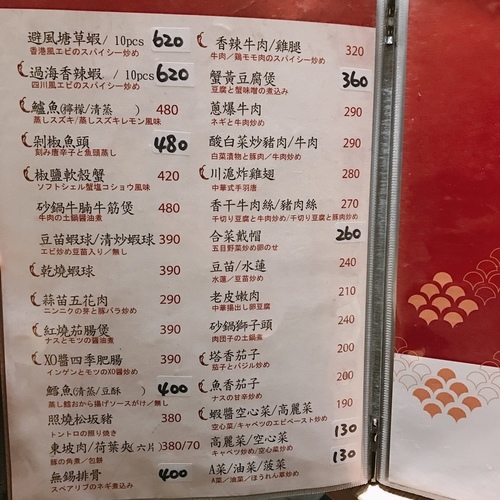 避風塘草蝦 / 10pcs 620
香港風エビのスパイシー炒め
過海香辣蝦 / 10pcs 620
四川風エビのスパイシー炒め
鱸魚(檸檬/清蒸 ) 480
蒸しスズキ/蒸しスズキレモン風味
剁椒魚頭 480
刻み唐辛子と魚頭蒸し
椒鹽軟殼蟹 420
ソフトシェル蟹塩コショウ風味
砂鍋牛腩牛筋煲 480
牛肉の土鍋醤油煮
豆苗蝦球/清炒蝦球 390
エビ炒め豆苗入り/無し
乾燒蝦球 390
蒜苗五花肉 290
ニンニクの芽と豚バラ炒め
紅燒茄腸煲 390
ナスとモツの醤油煮
XO醬四季肥腸 390
インゲンとモツのXO醤炒め
鱈魚(清蒸/豆酥 ) 400
蒸し鱈おから揚げソースがけ/無し
照燒松坂豬 380
トントロの照り焼き
東坡肉/荷葉夾(六片) 380/70
豚の角煮/包餅
無錫排骨 400
スペアリブのネギ煮込み
香辣牛肉/雞腿 320
牛肉/鶏モモ肉のスパイシー炒め
蟹黃豆腐煲 360
豆腐と蟹味噌の煮込み
蔥爆牛肉 290
ネギと牛肉炒め
酸白菜炒豬肉/牛肉 290
白菜漬物と豚肉/牛肉炒め
川滬炸雞翅 280
中華式手羽唐
香干牛肉絲/豬肉絲 270
千切り豆腐と牛肉炒め/千切り豆腐と豚肉炒め
合菜戴帽 260
五目野菜炒め卵のせ
豆苗/水蓮 240
水蓮/豆苗炒め
老皮嫩肉 210
中華揚出し卵豆腐
砂鍋獅子頭 240
肉団子の土鍋煮
塔香茄子 200
茄子とバジル炒め
魚香茄子 200
ナスの甘辛炒め
蝦醬空心菜/高麗菜 190
空心菜/キャベツのエビペースト炒め
高麗菜/空心菜 130
キャベツ炒め/空心菜炒め
A菜/油菜/菠菜 130
A菜/油菜/ほうれん草炒め